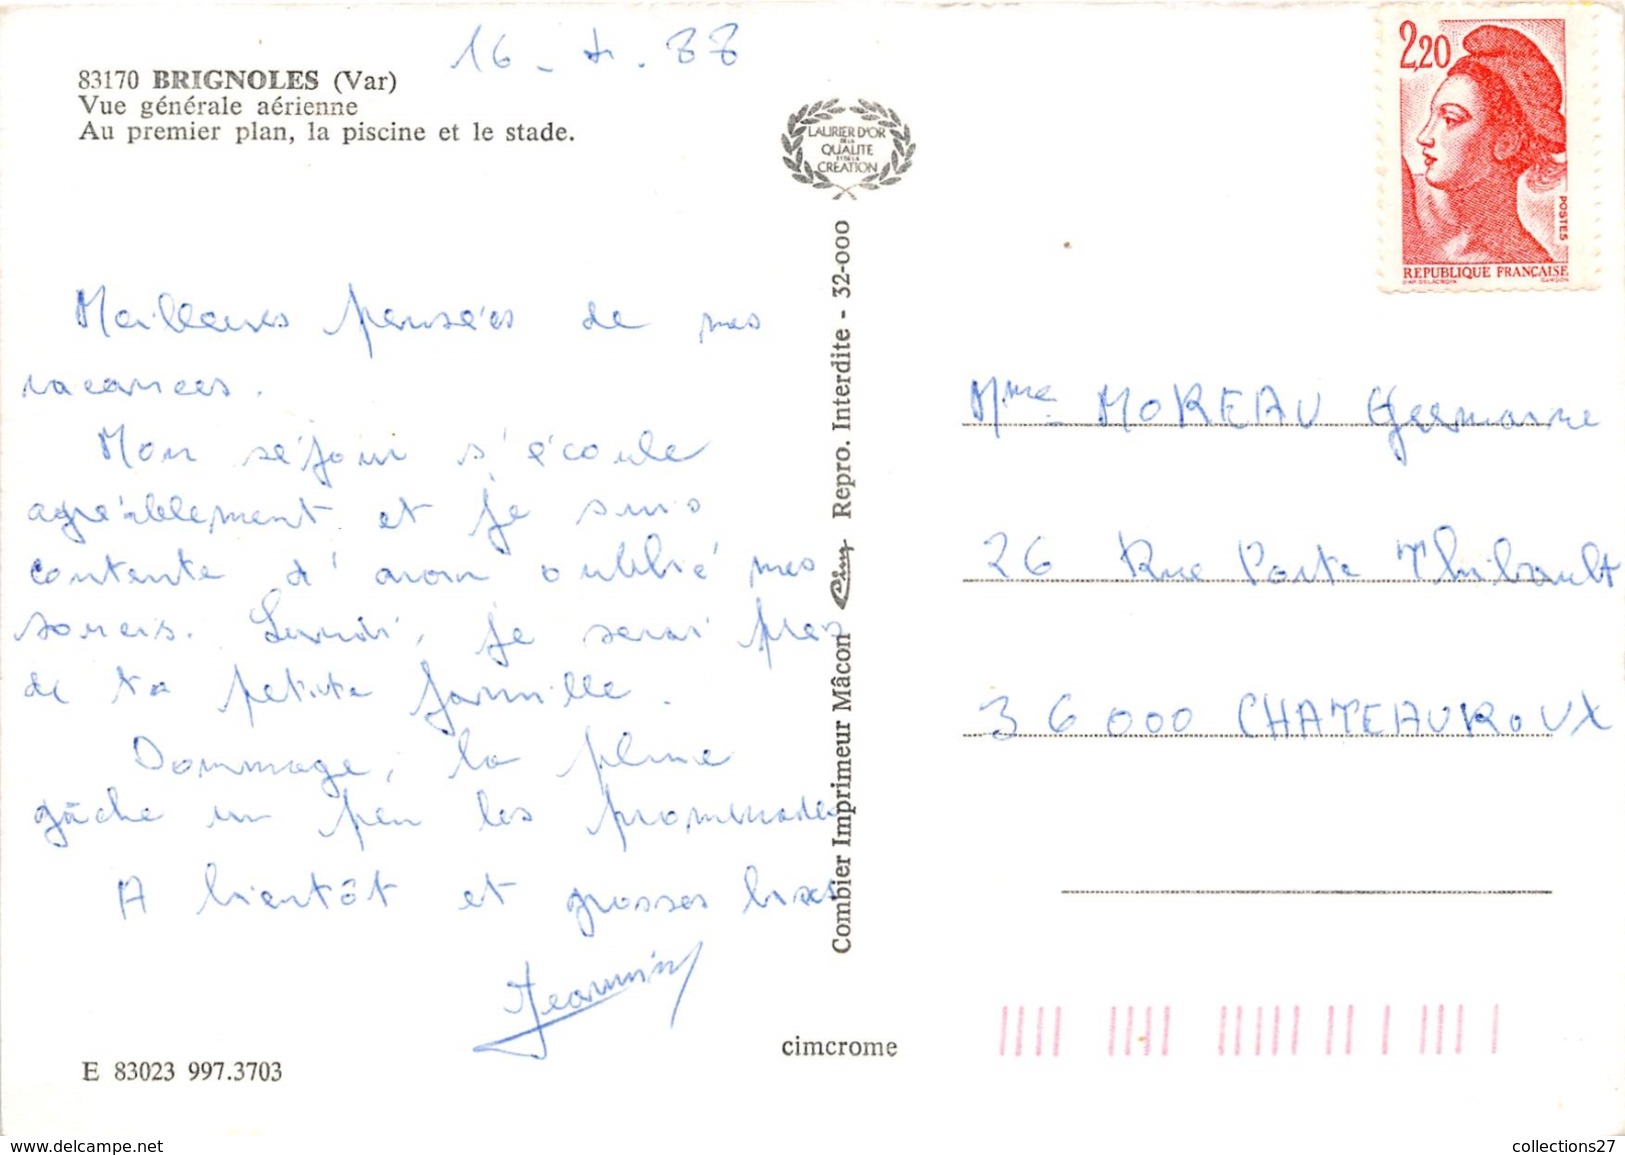 16 - 4 . 88
83170 BRIGNOLES (Var)
Vue générale aérienne
Au premier plan, la piscine et le stade.
LAURIER D'OR
DE LA
QUALITE
ET DE LA
CREATION
Meilleures pensées de mes
vacances.
Mon séjour s'écoule
agréablement et je suis
contente d'avoir oublié mes
soucis. Lundi, je serai près
de ta petite famille.
Dommage, la pluie
gâche un peu les promenades
A bientôt et grosses bises
E 83023 997.3703
Combier Imprimeur Mâcon Cim Repro. Interdite - 32-000
cimcrome
2,20
POSTES
REPUBLIQUE FRANÇAISE
D'AP. DELACROIX GANDON
Mme MOREAU Germaine
26 Rue Porte Thibault
36000 CHATEAUROUX
www.delcampe.net
collections27